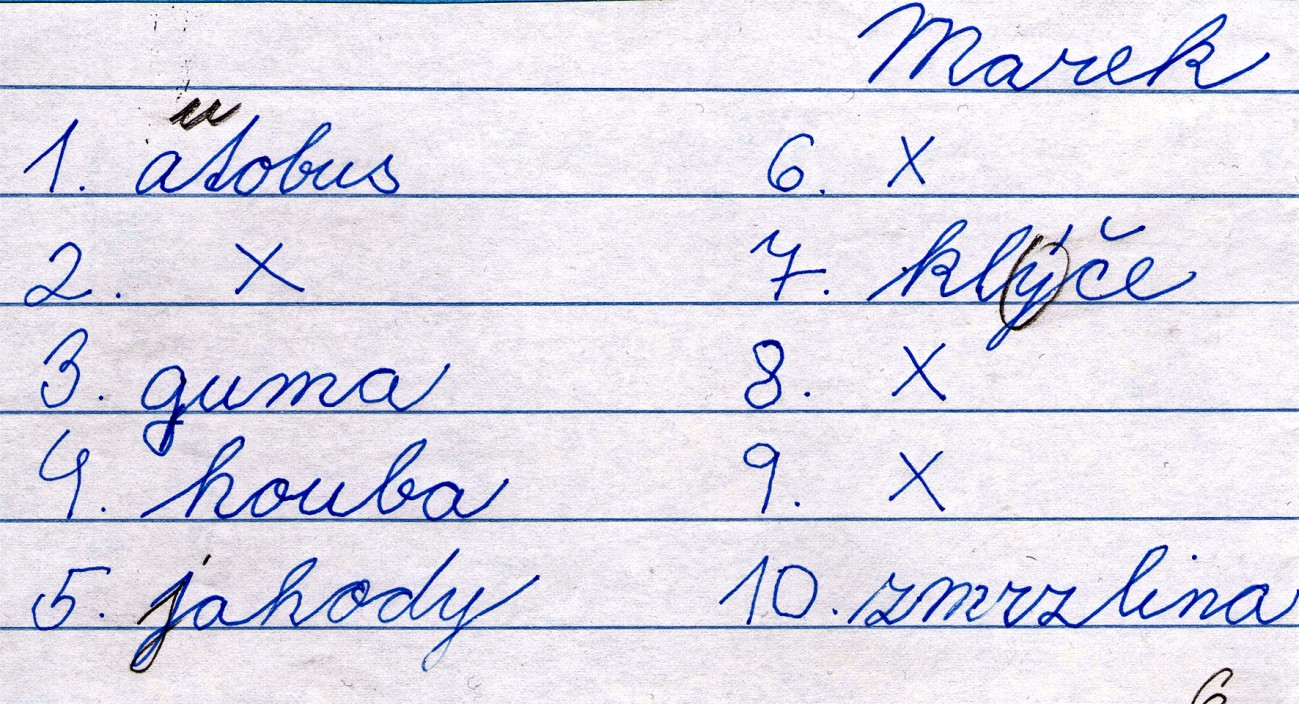 Marek
u
1. atobus
6. X
2. X
7. klýče
3. guma
8. X
4. houba
9. X
5. jahody
10. zmrzlina
6